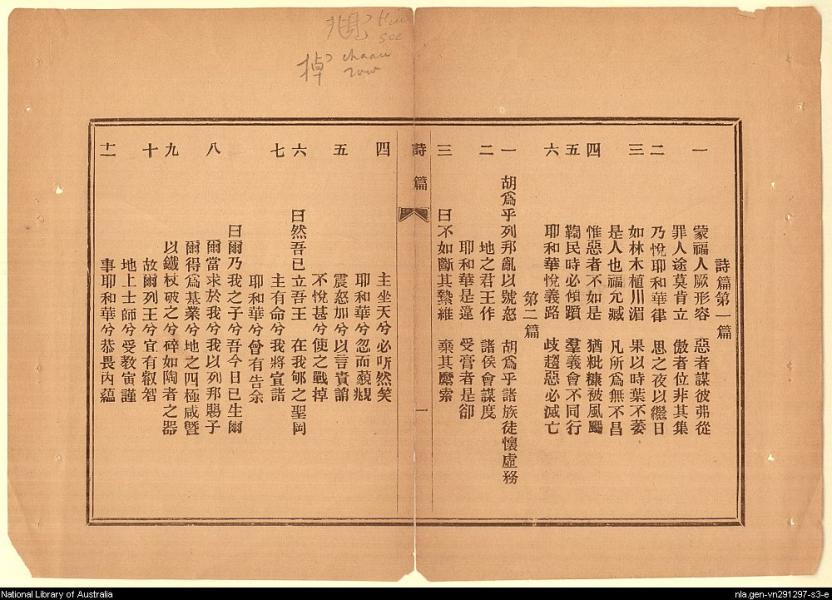 詩篇第一篇
一 蒙福人厥形容 惡者謀彼弗從
罪人途莫肯立 傲者位非其集
二 乃悅耶和華律 思之夜以繼日
三 如林木植川湄 果以時葉不萎
是人也福允臧 凡所爲無不昌
四 惟惡者不如是 猶粃糠被風颺
五 鞫民時必傾躓 羣義會不同行
六 耶和華悅義路 歧趨惡必滅亡
第二篇
一 胡爲乎列邦亂以號怒 胡爲乎諸族徒懷虛務
二 地之君王作 諸侯會謀度
耶和華是違 受膏者是卻
三 曰不如斷其縶維 棄其縻索
詩篇
一
四 主坐天兮必听然笑
耶和華兮忽而藐
五 震怒加兮以言責誚
不悅甚兮使之戰掉
六 曰然吾已立吾王 在我郇之聖岡
七 主有命兮我將宣諸
耶和華兮曾有告余
曰爾乃我之子兮吾今日已生爾
八 爾當求於我兮我以列邦賜子
爾得爲基業兮地之四極咸曁
九 以鐵杖破之兮碎如陶者之器
十 故爾列王兮宜有叡智
地上士師兮受敎寅謹
十一 事耶和華兮恭畏內蘊
掉 chaau
National Library of Australia
nla.gen-vn291297-s3-e